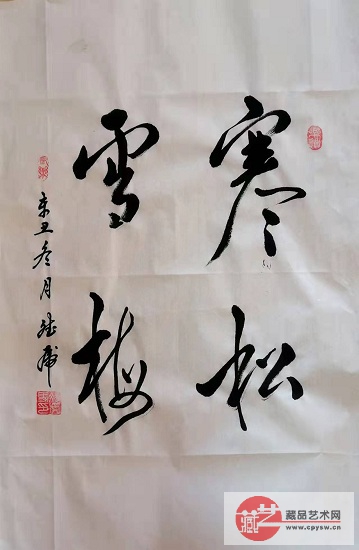 寒松
雪梅
辛丑冬月
藏艺
藏品艺术网
www.cpysw.cn